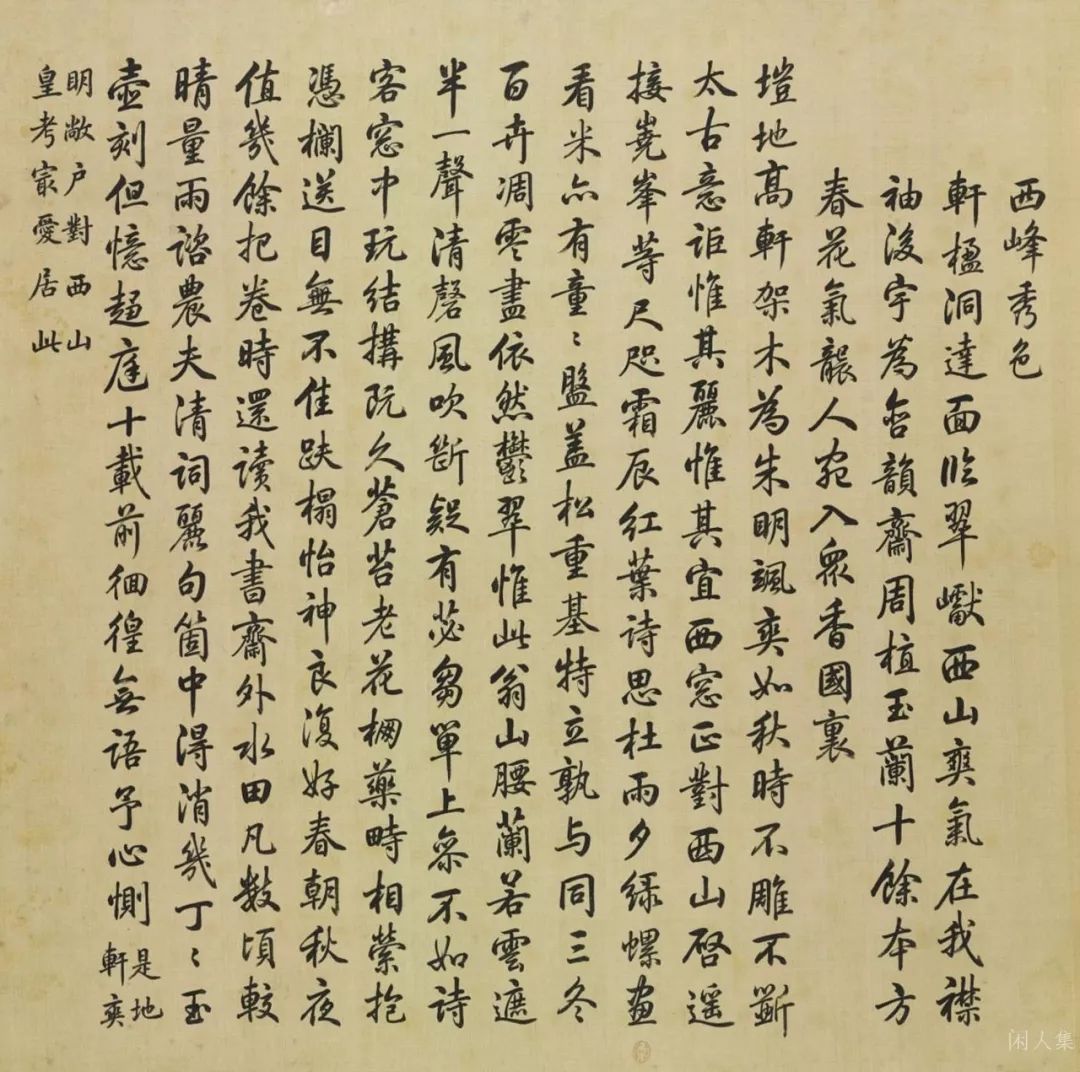 西峰秀色
軒楹洞達面臨翠巘西山爽氣在我襟
袖後宇為含韻齋周植玉蘭十餘本方
春花氣襲人宛入眾香國裏
塏地高軒架木為朱明颯爽如秋時不雕不斲
太古意詎惟其麗惟其宜西窓正對西山啓遥
接嶤峯等尺咫霜辰紅葉詩思杜雨夕綠螺畫
看米亦有童〻盤蓋松重基特立孰与同三冬
百卉凋零盡依然鬱翠惟此翁山腰蘭若雲遮
半一聲清磬風吹斷疑有苾芻單上參不如詩
客窓中玩結搆既久蒼苔老花欄藥畤相縈抱
憑欄送目無不佳趺榻怡神良復好春朝秋夜
值幾餘把卷時還讀我書齋外水田凡數頃較
晴量雨諮農夫清詞麗句箇中得消幾丁〻玉
壺刻但憶趨庭十載前徊徨無語予心惻是地軒爽
明敞户對西山
皇考冣愛居此
闲人集